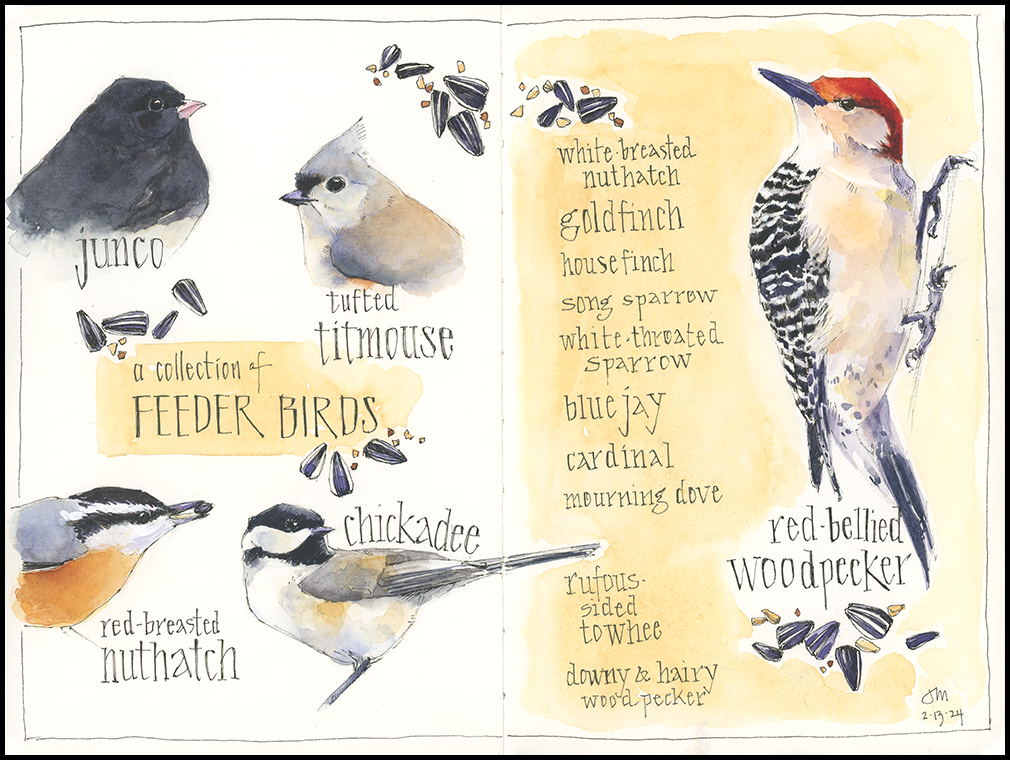 junco
tufted
titmouse
a collection of
FEEDER BIRDS
chickadee
red-breasted
nuthatch
white-breasted
nuthatch
goldfinch
house finch
song sparrow
white-throated
sparrow
blue jay
cardinal
mourning dove
rufous-
sided
towhee
downy & hairy
woodpecker
red-bellied
woodpecker
JM
2·13·24